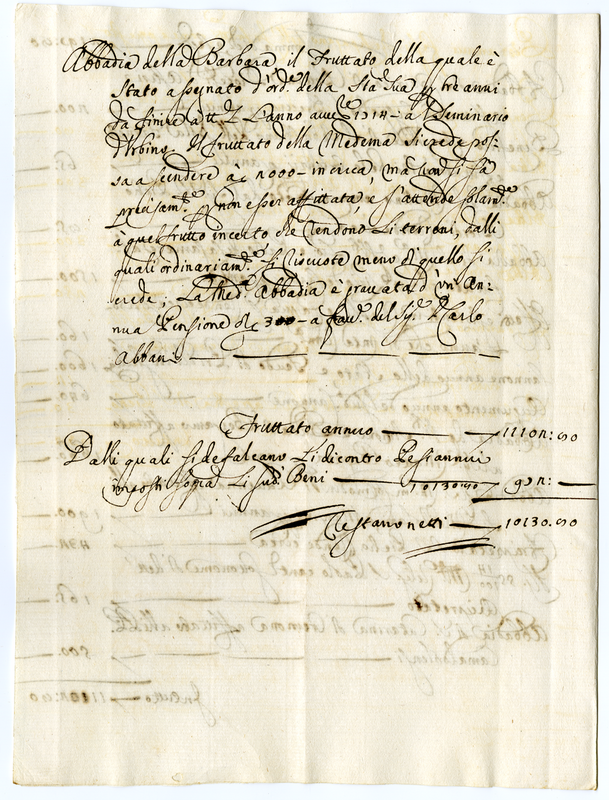 Abbadia della Barbara il Fruttato della quale è
stato assegnato d'ord.e della Sta Sua p tre anni
da finire à tt.o L'anno 1714 - al Seminario
d'Urbino. Il fruttato della Medema si crede pos-
sa ascendere à in circa, ma non si sà
precisam.te p non esser affittata, e s'attende solam.te
à quel frutto incerto che rendono Li terreni, dalli
quali ordinariam.te si riscuote meno di quello si
crede; La med.a Abbadia è gravata d'un An:
nua Pensione di 300 - a fav.e del Sig.r Carlo
Abbani
Fruttato annuo
Dalli quali si defalcano Li dicontro Pesi annui
imposti sopra Li sud.i Beni — 10130:90
Restano netti — 10130.90